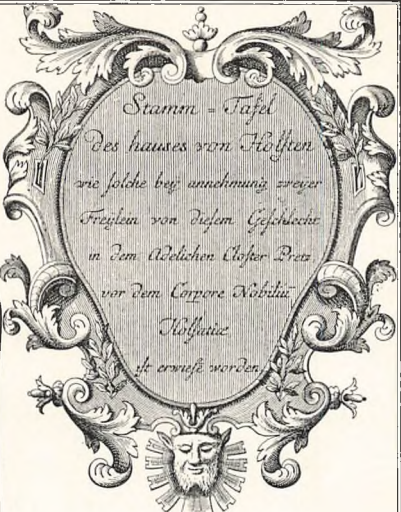 Stamm = Tafel
des hauses von Holsten
wie solche beÿ annehmung zweÿer
Freÿlein von diesem Geschlecht
in dem Adelichen Closter Pretz
vor dem Corpore Nobiliū
Holsatiæ
ist erwiesē worden